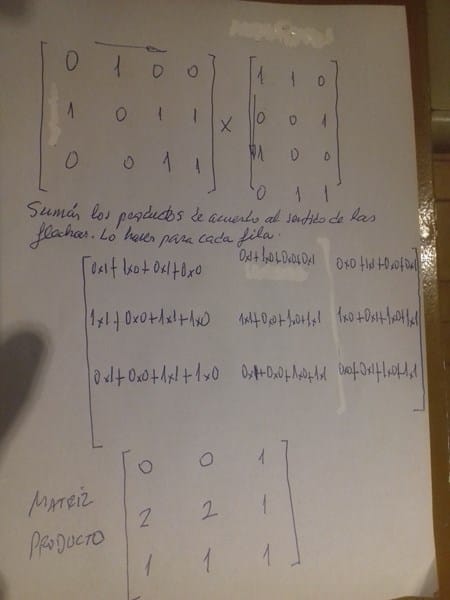 0 1 0 0
1 0 1 1
0 0 1 1
x
1 1 0
0 0 1
1 0 0
0 1 1
Sumás los productos de acuerdo al sentido de las
flechas. Lo haces para cada fila.
0x1+1x0+0x1+0x0 0x1+1x0+0x0+0x1 0x0+1x1+0x0+0x1
1x1+0x0+1x1+1x0 1x1+0x0+1x0+1x1 1x0+0x1+1x0+1x1
0x1+0x0+1x1+1x0 0x1+0x0+1x0+1x1 0x0+0x1+1x0+1x1
MATRIZ
PRODUCTO
0 0 1
2 2 1
1 1 1